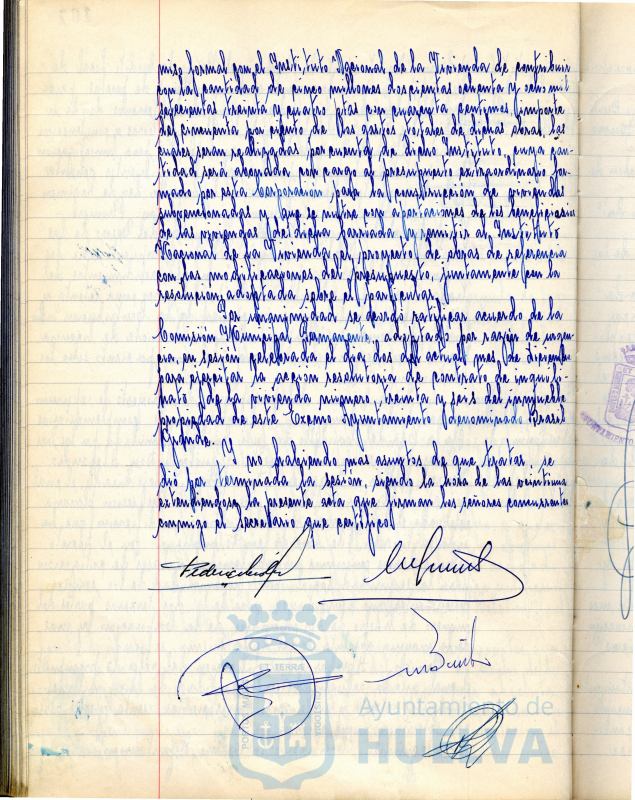 miso formal con el Instituto Nacional de la Vivienda de contribuir
con la cantidad de cinco millones doscientas ochenta y seis mil
setecientas treinta y cuatro ptas con cuarenta centimos, importe
del cincuenta por ciento de los gastos totales de dichas obras, las
cuales seran realizadas por cuenta de dicho Instituto, cuya can-
tidad será abonada con cargo al presupuesto extraordinario for-
mado por esta Corporación para la construcción de viviendas
subvencionadas y que se nutre con aportaciones de los beneficiarios
de las viviendas de dicha barriada y remitir al Instituto
Nacional de la Vivienda el proyecto de obras de referencia
con las modificaciones del presupuesto, juntamente con la
resolucion adoptada sobre el particular.
Por unanimidad se acordó ratificar acuerdo de la
Comisión Municipal Permanente, adoptado por razón de urgen-
cia, en sesión celebrada el día dos del actual mes de diciembre
para ejercitar la acción resolutoria de contrato de inquili-
nato de la vivienda número treinta y seis del inmueble
propiedad de este Excmo Ayuntamiento denominado Grasal
Grande.
Y no habiendo mas asuntos de que tratar, se
dió por terminada la sesión, siendo la hora de las veintiuna
extendiendose la presente acta que firman los señores concurrentes
conmigo el secretario que certifico.
ET TERRAE
Ayuntamiento de
HUELVA